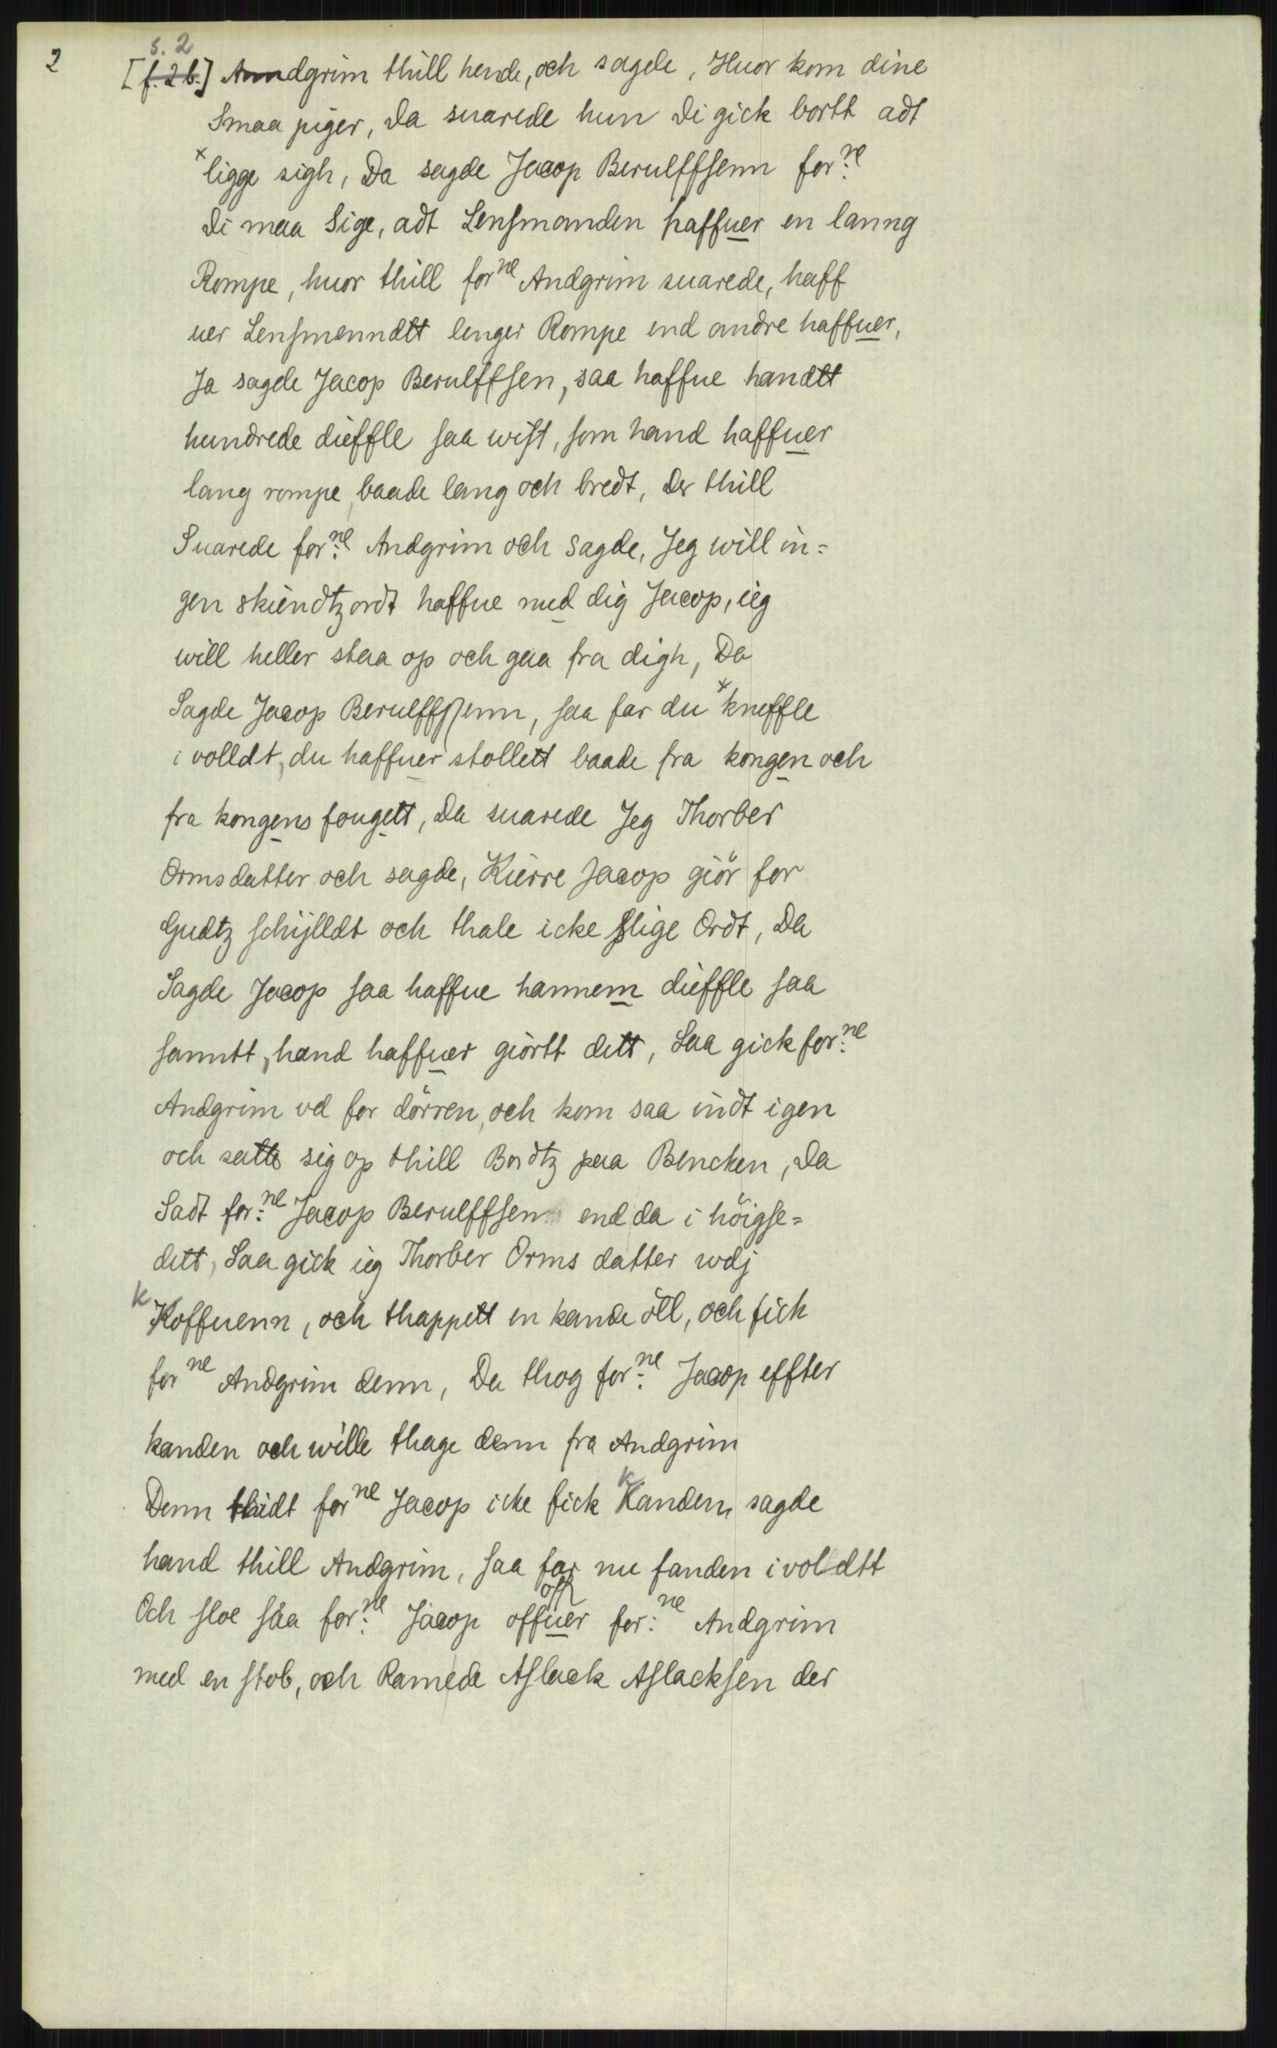 2
s. 2
[f. 2 b.] Anndgrim thill hende, och sagde, Huor kom dine
Smaa piger, Da suarede hun Di gick bortt adt
*ligge sigh, Da sagde Jacop Berulffsenn for:ne
Di maa Sige, adt Lensmanden haffuer en lanng
Rompe, huor thill forne Andgrim suarede, haff
uer Lensmenndtt lenger Rompe end andre haffuer,
Ja sagde Jacop Berulffsen, saa haffue handtt
hundrede dieffle saa wist, som hand haffuer
lang rompe, baade lang och bredt, Der thill
Suarede for:ne Andgrim och sagde, Jeg will in=
gen skiendtzordt haffue med dig Jacop, ieg
will heller staa op och gaa fra digh, Da
Sagde Jacop Berulffsenn, saa far du *kneffle
i volldt, du haffuer stollett baade fra kongen och
fra kongens fougett, Da suarede Jeg Thorber
Ormsdatter och sagde, Kierre Jacop giör for
Gudtz schijlldt och thale icke slige Ordt, Da
Sagde Jacop saa haffue hannem dieffle saa
sanntt, hand haffuer giörtt dett, Saa gick for:ne
Andgrim vd for dörren, och kom saa indt igen
och sette sig op thill Bordtz paa Bencken, Da
Sadt for:ne Jacop Berulffsen endda i höigse=
dett, Saa gick ieg Thorber Orms datter wdj
k Koffuenn, och thappett en kande öll, och fick
forne Andgrim denn, Da thog for:ne Jacop effter
kanden och wille thage denn fra Andgrim
Denn thidt forne Jacop icke fick k Kanden, sagde
hand thill Andgrim, saa far nu fanden i voldtt
Och sloe saa for:ne Jacop offuer for:ne Andgrim
med en stob, och Ramede Aslack Aslacksen der